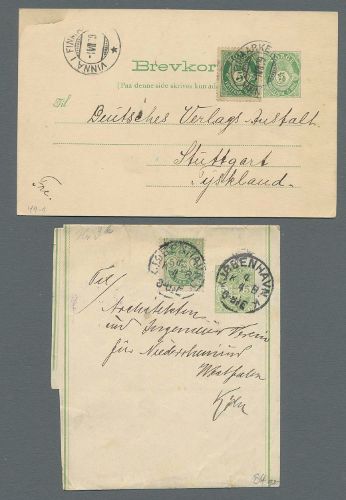 Brevkort
(Paa denne side skrives kun ad
Til
Deutsches Verlags Anstalt.
Stuttgart
Tyskland.
49-1
Til
Architekten
und Ingenieur Verein
für Niederrhein und
Westfalen
Köln
KJØBENHAVN K.
KJØBENHAVN K.